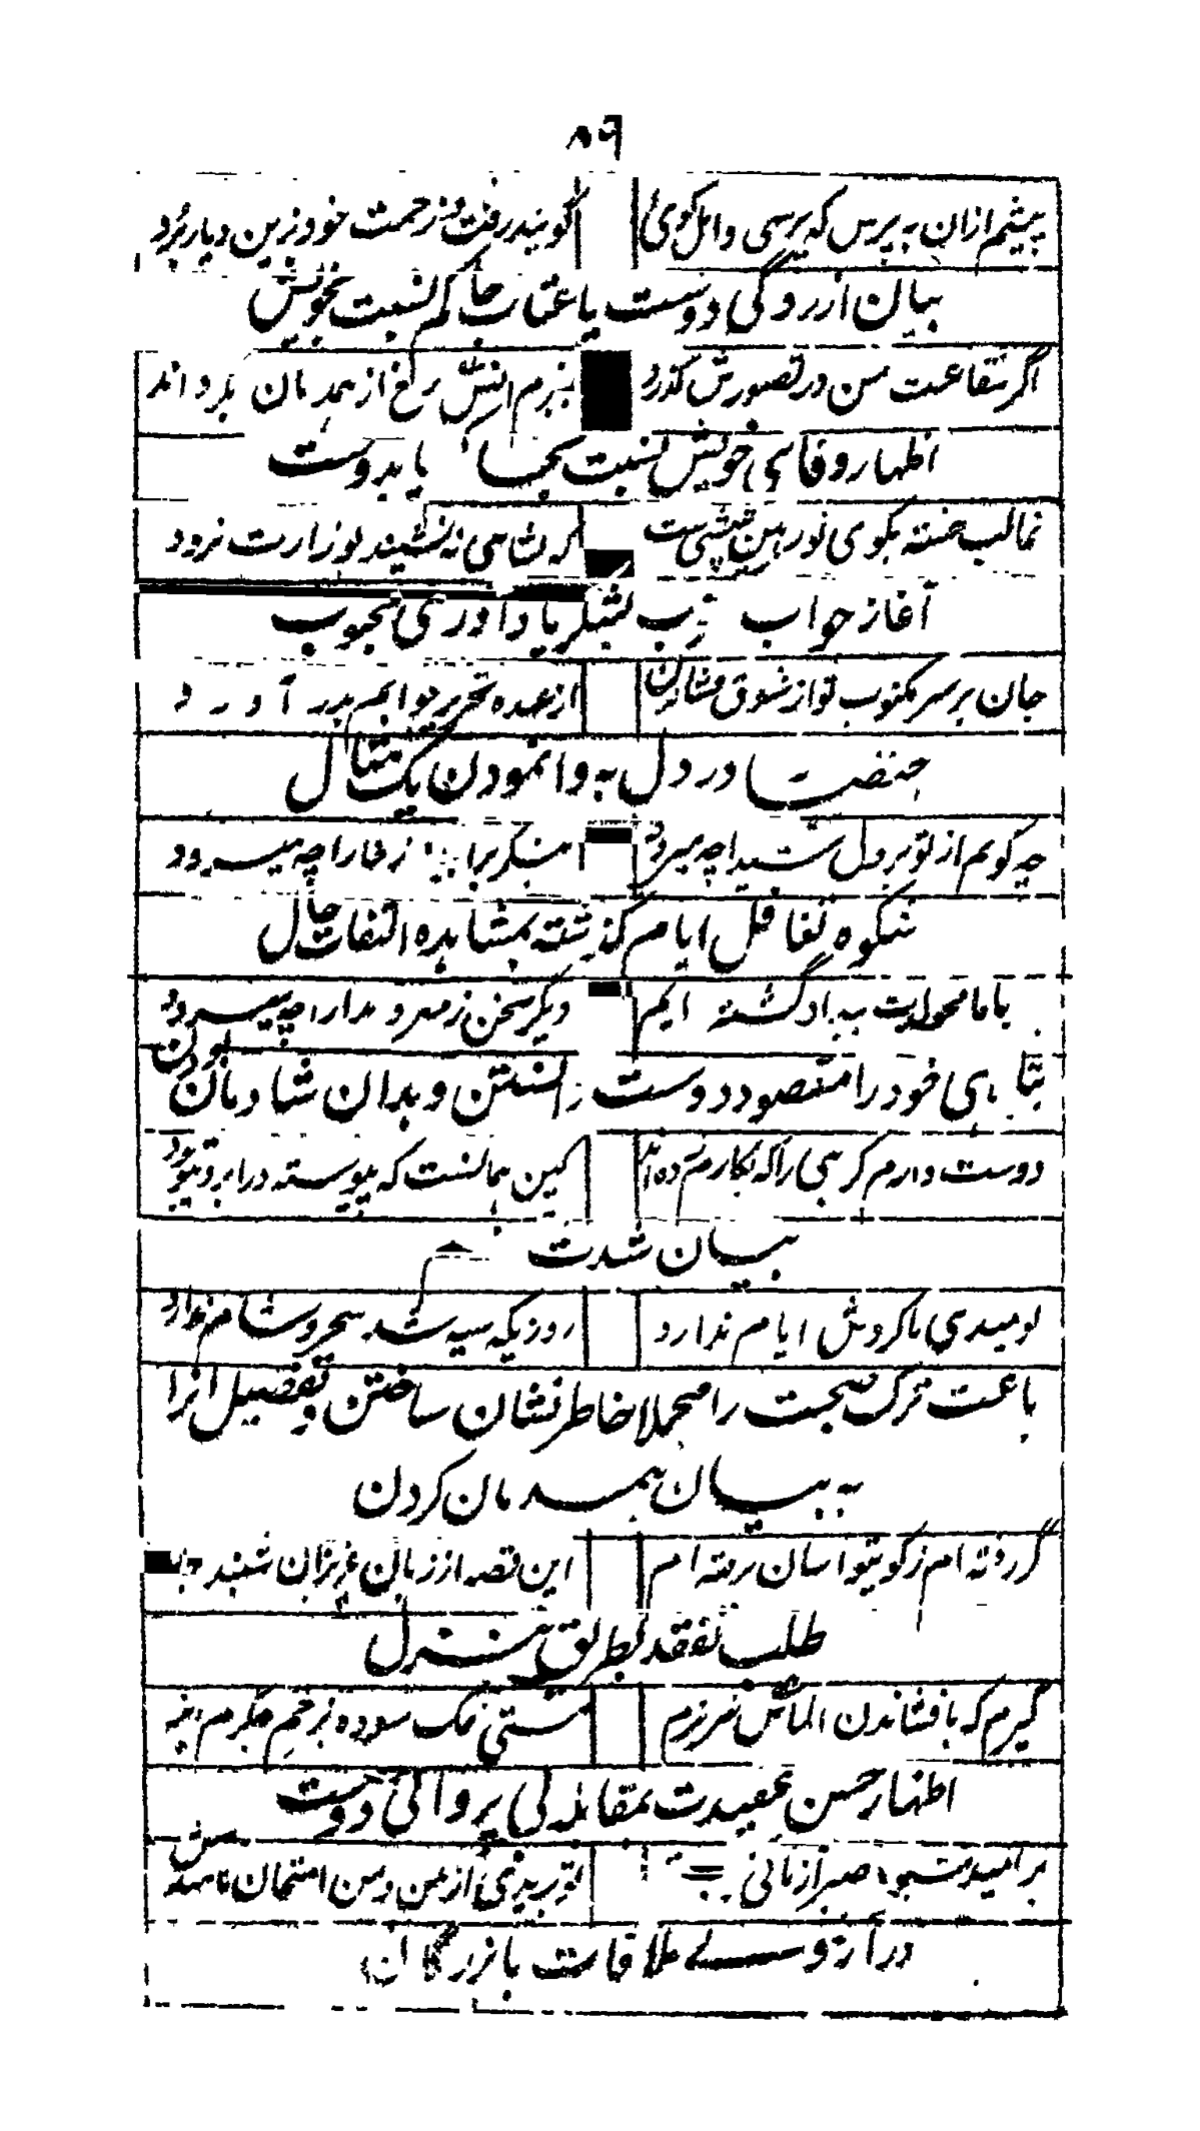 ۸۹
پیشم ازان به پرس که پرسی و اهل کوی گویند رفت و زحمت خود زین دیار برد
بیان ازردگی دوست یا عتاب حاکم نسبت بخویش
اگر شفاعت من در تصورش گذرد ببزم انس رخ از همدمان بگرداند
اظهار وفای خویش نسبت بحاکم یا بدوست
غالب خسته بکوی تو رهین گر بشاهی نه نشیند بوزارت نرود
آغاز جواب محبوب
جان بر سر مکتوب تو از شوق فشاندن از عهده تحریر جوابم بدر آورد
درد دل به وانمودن یک مثال
چه گویم از تو بر دل شیدا چه میرود بنگر برا ز خارا چه میرود
شکوه تغافل ایام گذشته بمشاهده التفات حال
با ما محوایت به بادگشته ایم دیگر سخن ز مهر و مدارا چه میرود
خود را مقصود دوست دانستن و بدان شادمان بودن
دوست دارم گرهی را که بکارم زده اند کین همانست که پیوسته در ابروی تو بود
بیان شدت
نومیدی ما گردش ایام ندارد روزیکه سیه شد سحر و شام ندارد
باعث ترک صحبت را مجملا خاطر نشان ساختن و تفصیل انرا
به بیان همدمان کردن
گر رفته ام ز کوی تو اسان رفته ام این قصه از زبان عزیزان شنید
طلب تفقد بطریق تنزل
گیرم که بافشاندن الماس نیرزم مشتی نمک سوده بزخم جگرم ریز
اظهار حسن عقیدت بمقابله بی پروائی دوست
بر امید صبر ازمائی تو بریدی از من و من امتحان نامیدمش
در آرزوی ملاقات بازرگان